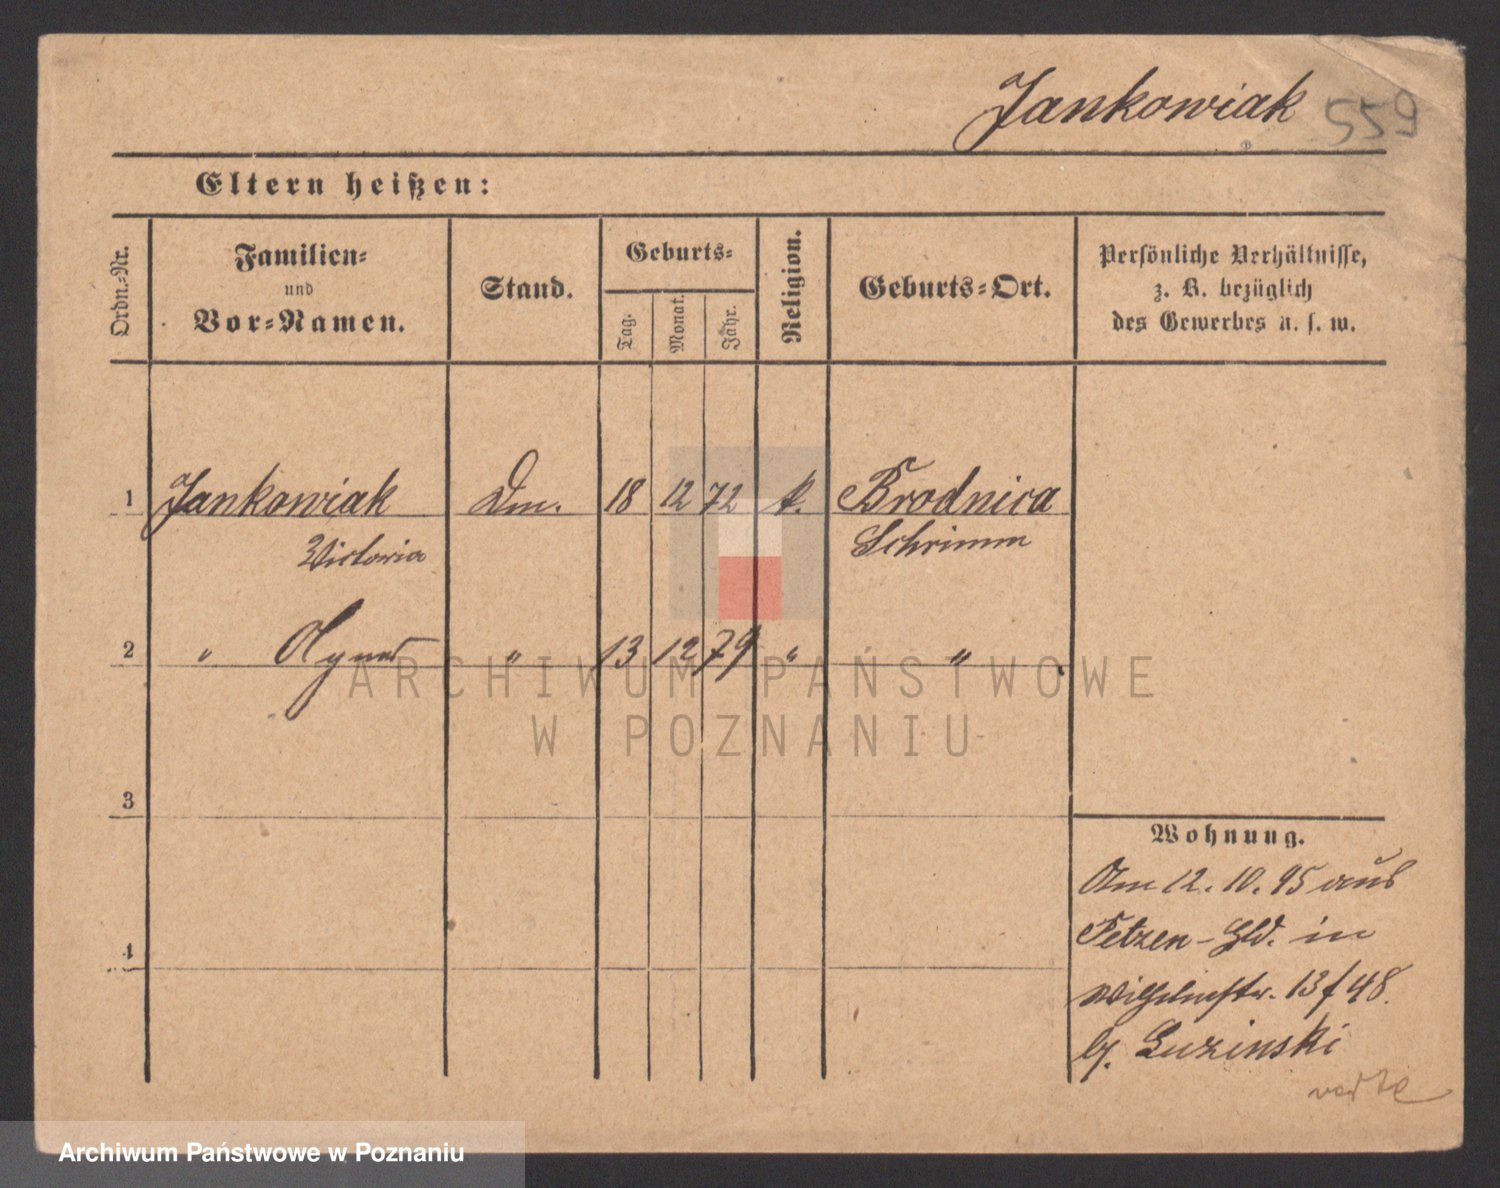 Jankowiak 559
Eltern heißen:
Ordn.-Nr.
Familien-
und
Vor-Namen.
Stand.
Geburts-
Tag.
Monat.
Jahr.
Religion.
Geburts-Ort.
Persönliche Verhältnisse,
z. B. bezüglich
des Gewerbes u. s. w.
1 Jankowiak Dm. 18 12 72 k. Brodnica
Victoria Schrimm
2 " " 13 12 79 " "
3
4
Wohnung.
Am 12. 10. 95 aus
in
Wilhelmstr. 13 f 48.
Luzinski
verte
ARCHIWUM PAŃSTWOWE
W POZNANIU
Archiwum Państwowe w Poznaniu